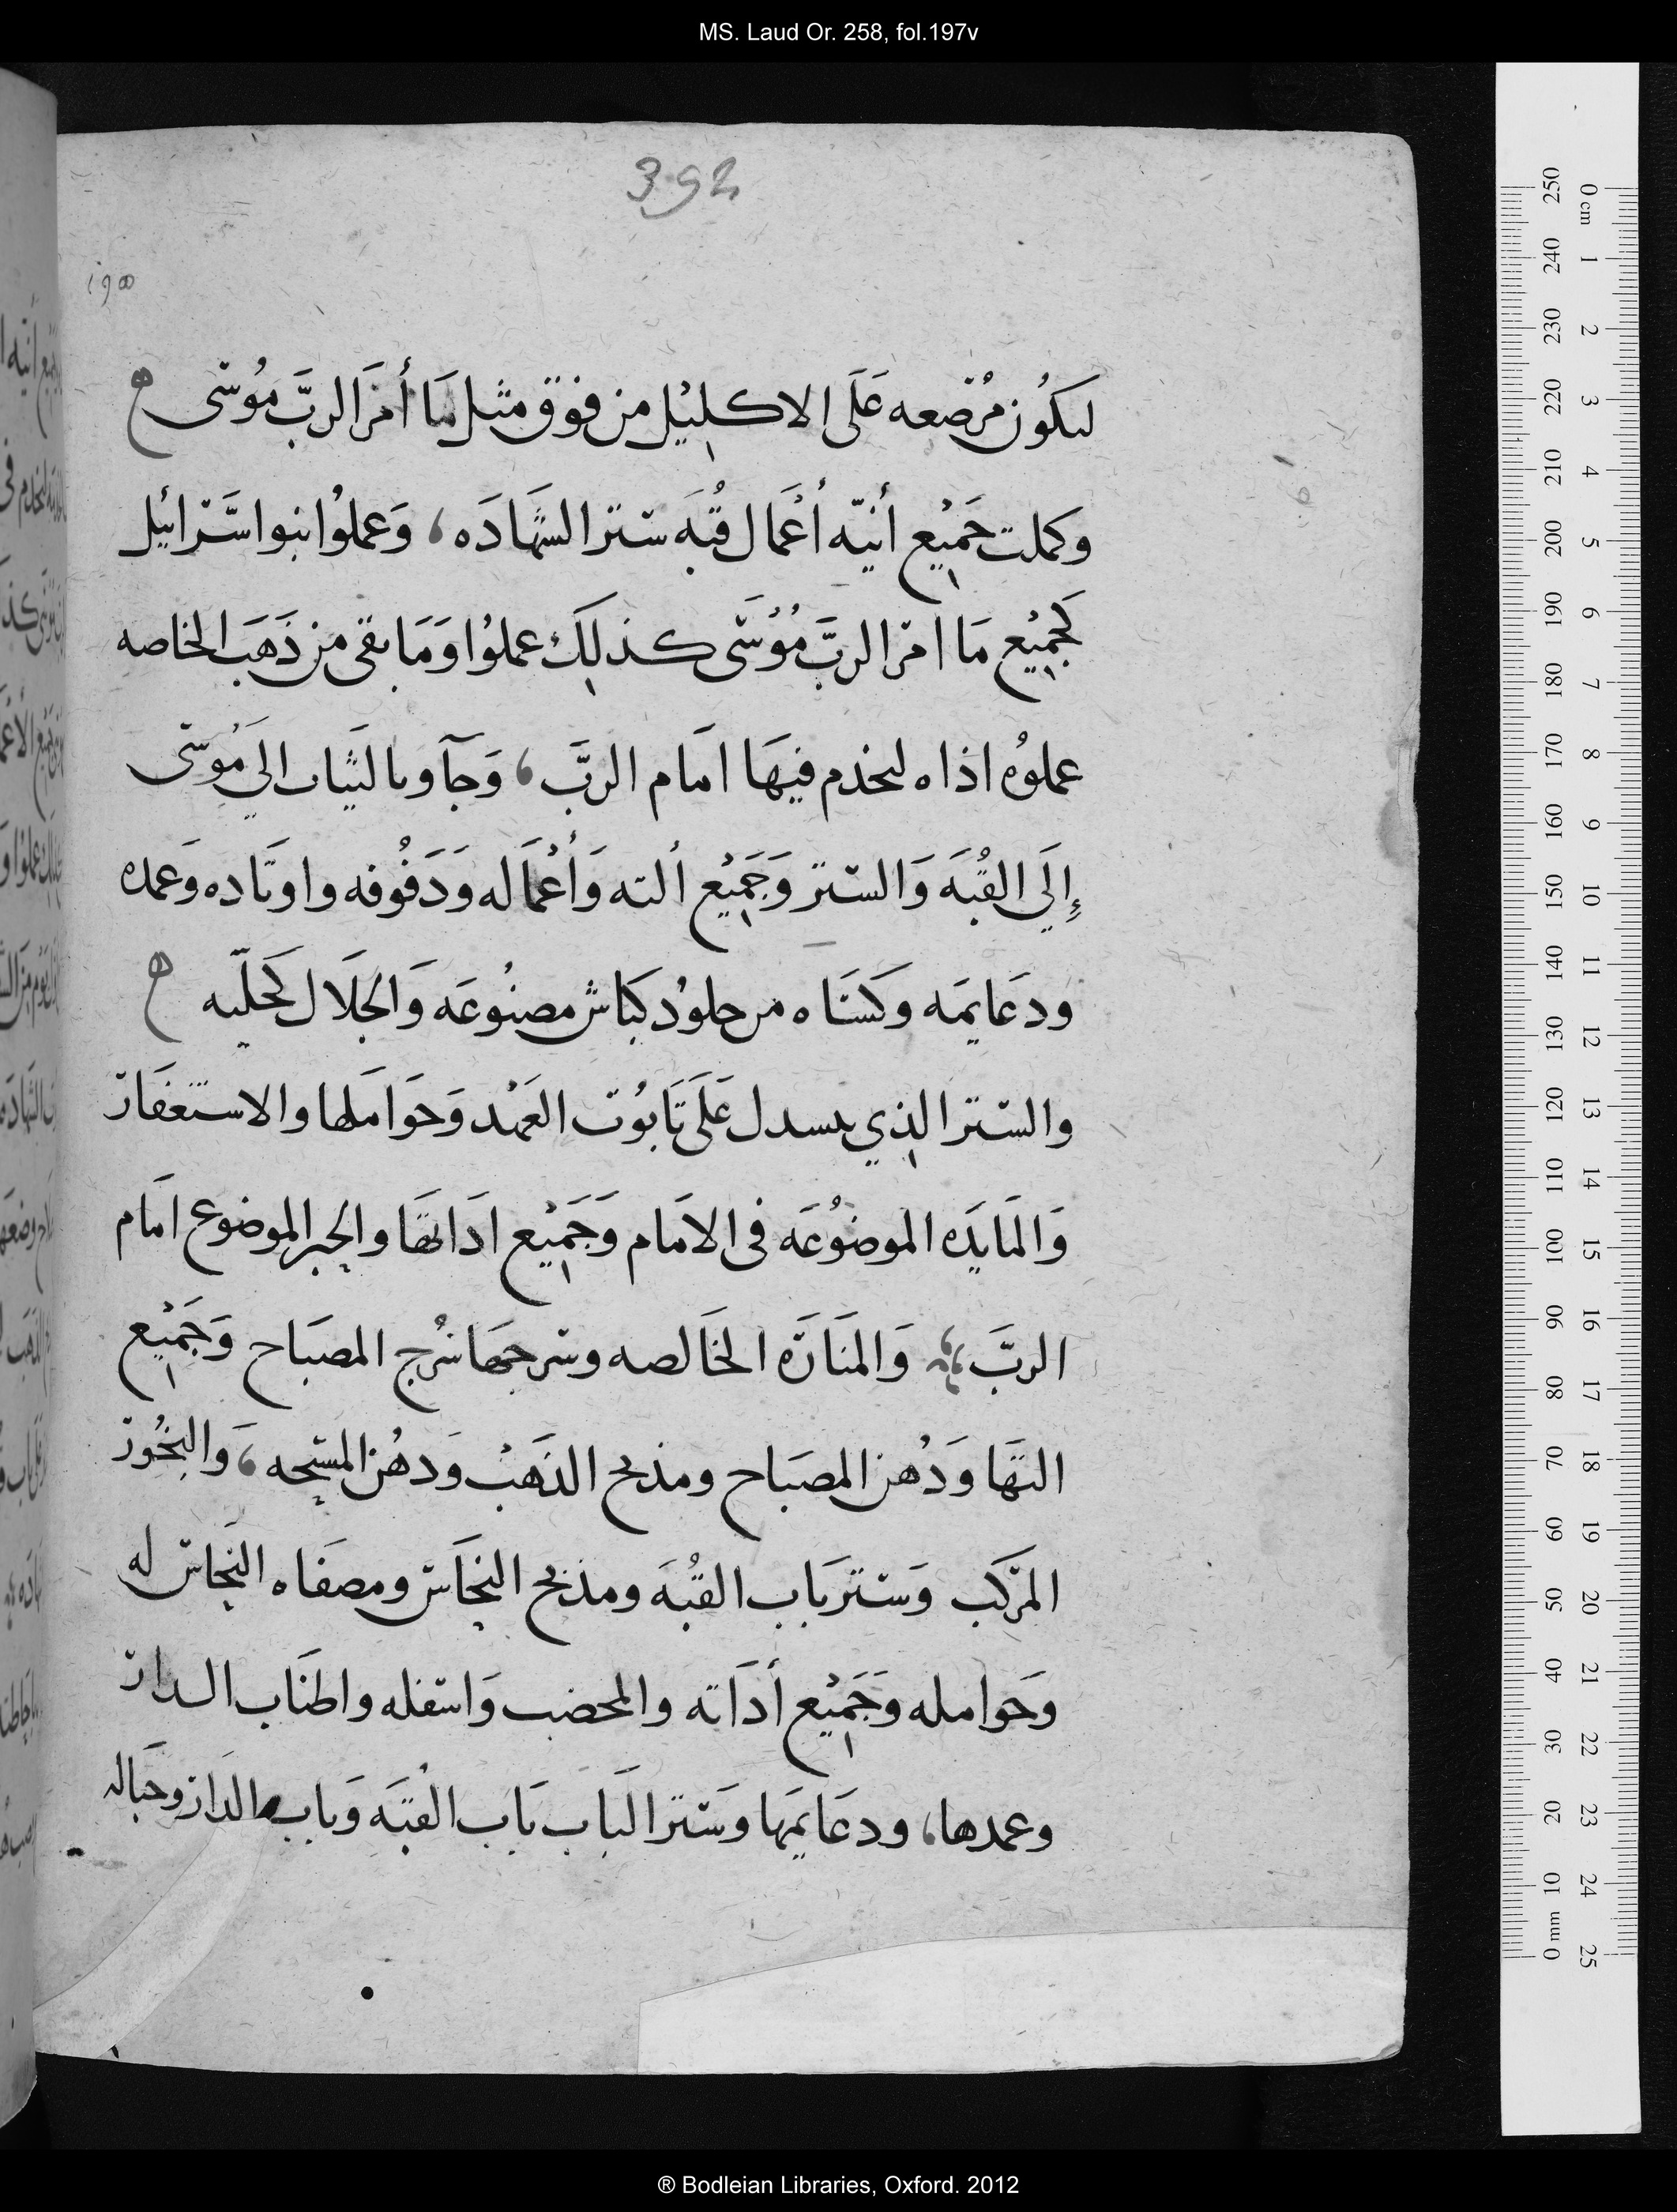 MS. Laud Or. 258, fol.197v
392
لىكُون مُرَصّعه عَلَى الاكلِيْل من فوق مثل مَا أمَرَ الربَّ مُوسَى
وكملت جَمِيْع أنيّه أعْمَال قُبَه ستر الشهَادَه، وَعملوُا بنو اسَّرائيل
كجَمِيْع مَا امر الربَّ مُوُسَى كذلِكَ عملوُا وَمَا بقى من ذَهَب الخاصه
عملوُه اذاه لىخدم فيهَا امَام الربَّ، وَجآو بالثيَاب الي مُوسَى
إِلَي القُبَه وَالستر وَجَمِيْع ألته وَأعْمَاله وَدَفُوفه واوتَاده وَعمده
ودعَايمَه وكَسَاه من جلوُد كبَاش مصنُوعَه وَالجلَال كحليّه
والستر الذِي يسدل عَلَى تَابوُت العَهْد وَحَوَاملها والاستغفَار
وَالمَايدَه الموضُوعَه فى الامَام وَجَمِيْع ادَاتهَا والخبز الموضوع امَام
الربَّ، وَالمنَارَه الخَالصه وسرجهَا سُرج المصبَاح وَجَمِيْع
التهَا وَدُهن المصبَاح ومذبح الذَهَبْ وَدهُن المسحه، وَالبخُور
المَركب وَستر بَاب القُبَه ومذبح النحَاس ومصفَاه النحَاس له
وَحَوامله وَجَمِيْع أدَاته والمحضب وَاسفله واطنَاب الدار
وعمدها، ودعَايمهَا وسَتر البَاب بَاب القبَه وَبَاب الدَار وحبَاله
250 240 230 220 210 200 190 180 170 160 150 140 130 120 110 100 90 80 70 60 50 40 30 20 10 0 mm
0 cm 1 2 3 4 5 6 7 8 9 10 11 12 13 14 15 16 17 18 19 20 21 22 23 24 25
® Bodleian Libraries, Oxford. 2012